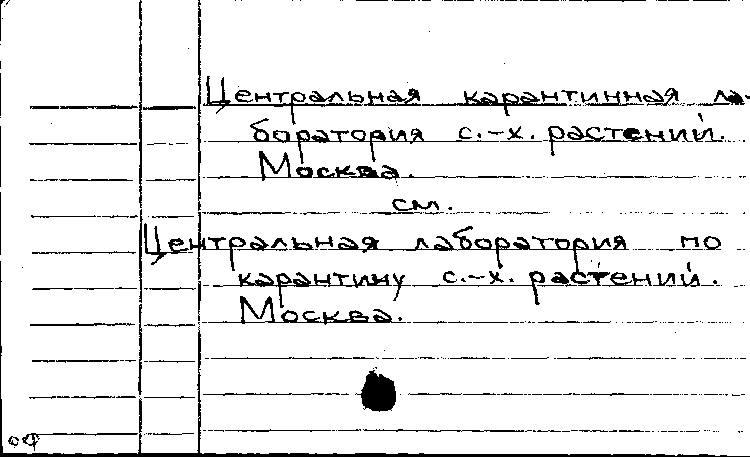 Центральная карантинная ла-
боратория с.-х. растений.
Москва.
см.
Центральная лаборатория по
карантину с.-х. растений.
Москва.